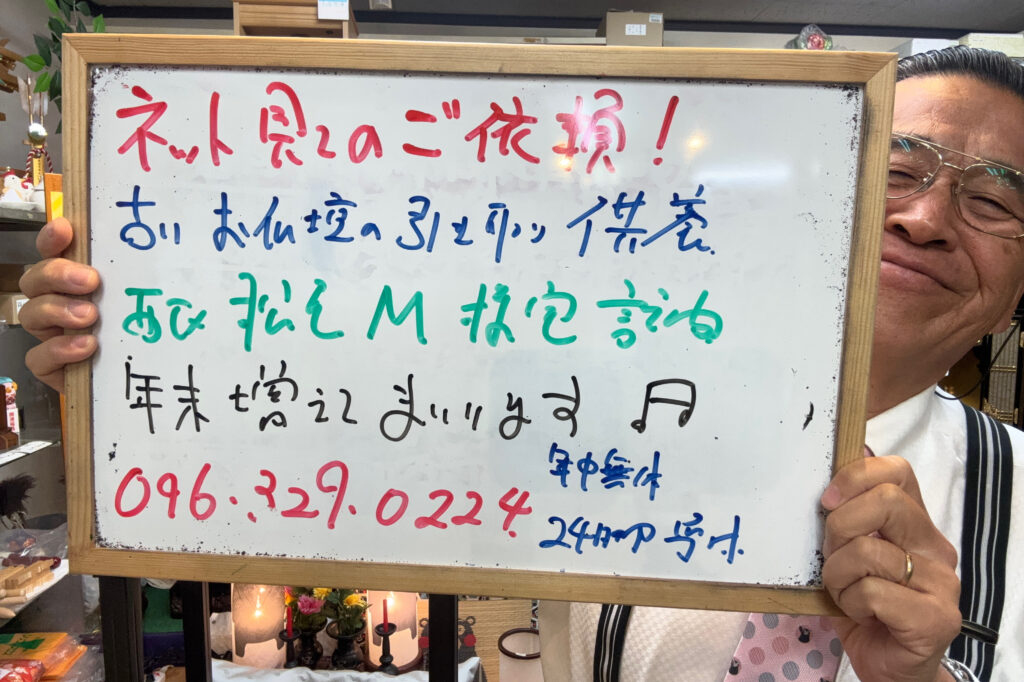 ネット見てのご依頼!
古いお仏壇の引き取り供養
西区 松尾 M様宅 訪問
年末増えてまいります♫
096.329.0224
年中無休
24時間